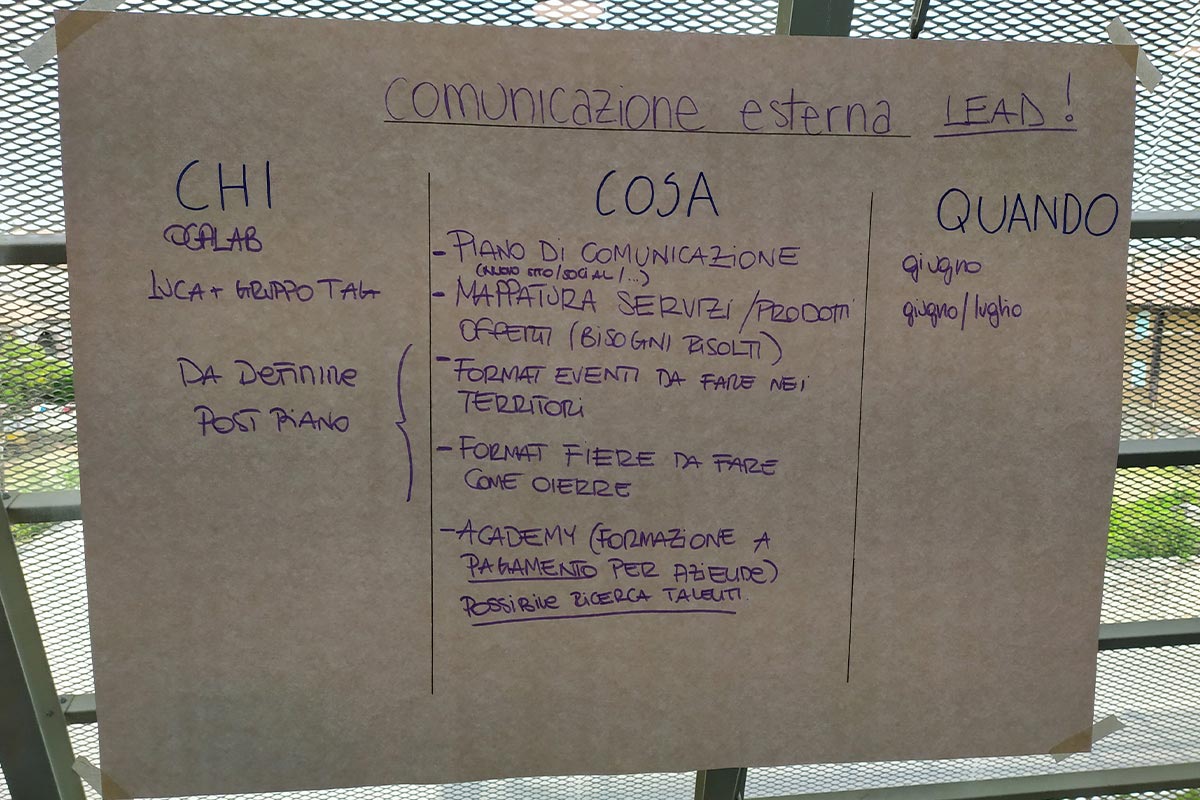 comunicazione esterna LEAD!
CHI
OGALAB
LUCA + GRUPPO TAG
DA DEFINIRE
POST PIANO
COSA
- PIANO DI COMUNICAZIONE
(NUOVO SITO/SOCIAL/...)
- MAPPATURA SERVIZI/PRODOTTI
OFFERTI (BISOGNI RISOLTI)
- FORMAT EVENTI DA FARE NEI
TERRITORI
- FORMAT FIERE DA FARE
COME OIERRE
- ACADEMY (FORMAZIONE A
PAGAMENTO PER AZIENDE)
POSSIBILE RICERCA TALENTI.
QUANDO
giugno
giugno/luglio